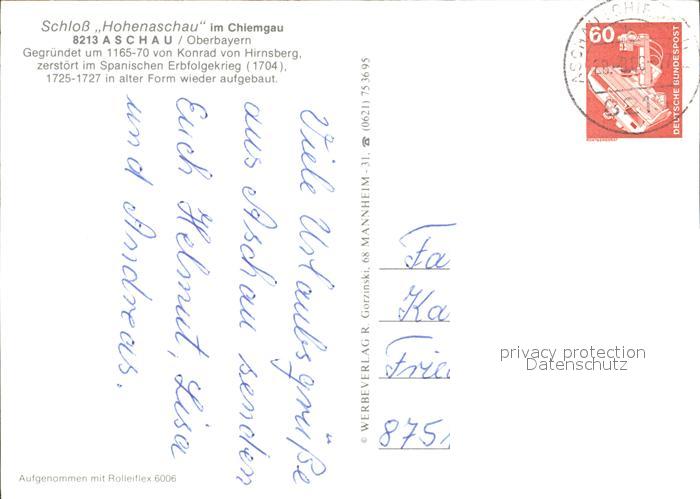 Schloß „Hohenaschau" im Chiemgau
8213 ASCHAU / Oberbayern
Gegründet um 1165-70 von Konrad von Hirnsberg,
zerstört im Spanischen Erbfolgekrieg (1704),
1725-1727 in alter Form wieder aufgebaut.
Viele Urlaubsgrüße
aus Aschau senden
Euch Helmut, Lisa
und Andreas.
© WERBEVERLAG R. Gorzinski, 68 MANNHEIM - 31, ☎ (0621) 75 36 95
60
DEUTSCHE BUNDESPOST
ASCHAU
Fa
Ka
Frie
875
privacy protection
Datenschutz
Aufgenommen mit Rolleiflex 6006